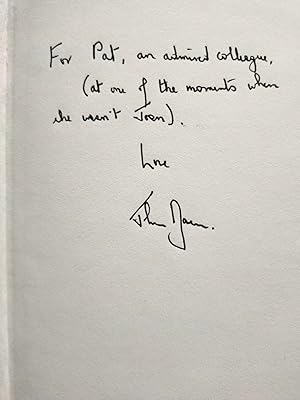 For Pat, an admired colleague,
(at one of the moments when
she wasn't Joan).
Love
John